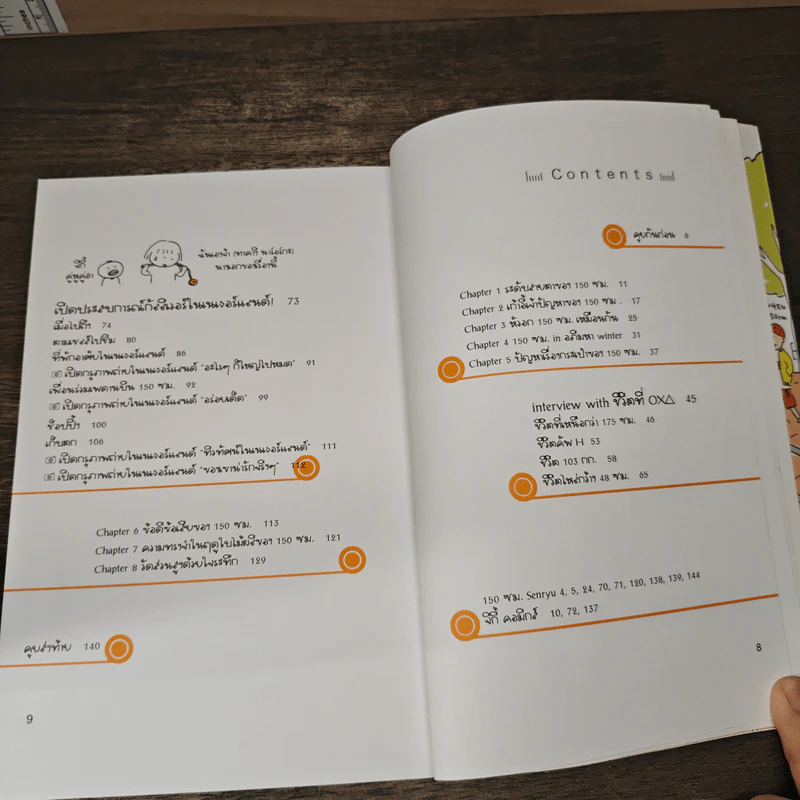 Contents
คุยกันก่อน 6
Chapter 1 ระดับสายตาของ 150 ซม. 11
Chapter 2 เก้าอี้เจ้าปัญหาของ 150 ซม . 17
Chapter 3 หัวอก 150 ซม. เหมือนกัน 25
Chapter 4 150 ซม. in อภิมหา winter 31
Chapter 5 ปัญหาเรื่องกระเป๋าของ 150 ซม. 37
interview with ชีวิตที่ OX△ 45
ชีวิตที่เหนือกว่า 175 ซม. 46
ชีวิตคัพ H 53
ชีวิต 103 กก. 58
ชีวิตไหล่กว้าง 48 ซม. 65
150 ซม. Senryu 4, 5, 24, 70, 71, 120, 138, 139, 144
จิกี้ คอมิกส์ 10, 72, 137
8
จิกี้
คู่หูคู่ฮา
ฉันเองจ้า (ทาคางิ นาโอโกะ)
นามอกของเรื่องนี้
เปิดประสบการณ์กัลลิเวอร์ในเนเธอร์แลนด์! 73
เมื่อไปถึง 74
ตามเธอไปชิม 80
ที่พักอาศัยในเนเธอร์แลนด์ 86
เปิดกรุภาพถ่ายในเนเธอร์แลนด์ "อะไรๆ ก็ใหญ่ไปหมด" 91
เพื่อนร่วมเพดานบิน 150 ซม. 92
เปิดกรุภาพถ่ายในเนเธอร์แลนด์ "อร่อยเด็ด" 99
ช้อปปิ้ง 100
เก็บตก 106
เปิดกรุภาพถ่ายในเนเธอร์แลนด์ "ทิวทัศน์ในเนเธอร์แลนด์" 111
เปิดกรุภาพถ่ายในเนเธอร์แลนด์ "ของเขาน่ารักจริงๆ" 112
Chapter 6 ข้อดีข้อเสียของ 150 ซม. 113
Chapter 7 ความทรงจำในฤดูใบไม้ผลิของ 150 ซม. 121
Chapter 8 วัดส่วนสูงด้วยใจระทึก 129
คุยส่งท้าย 140
9